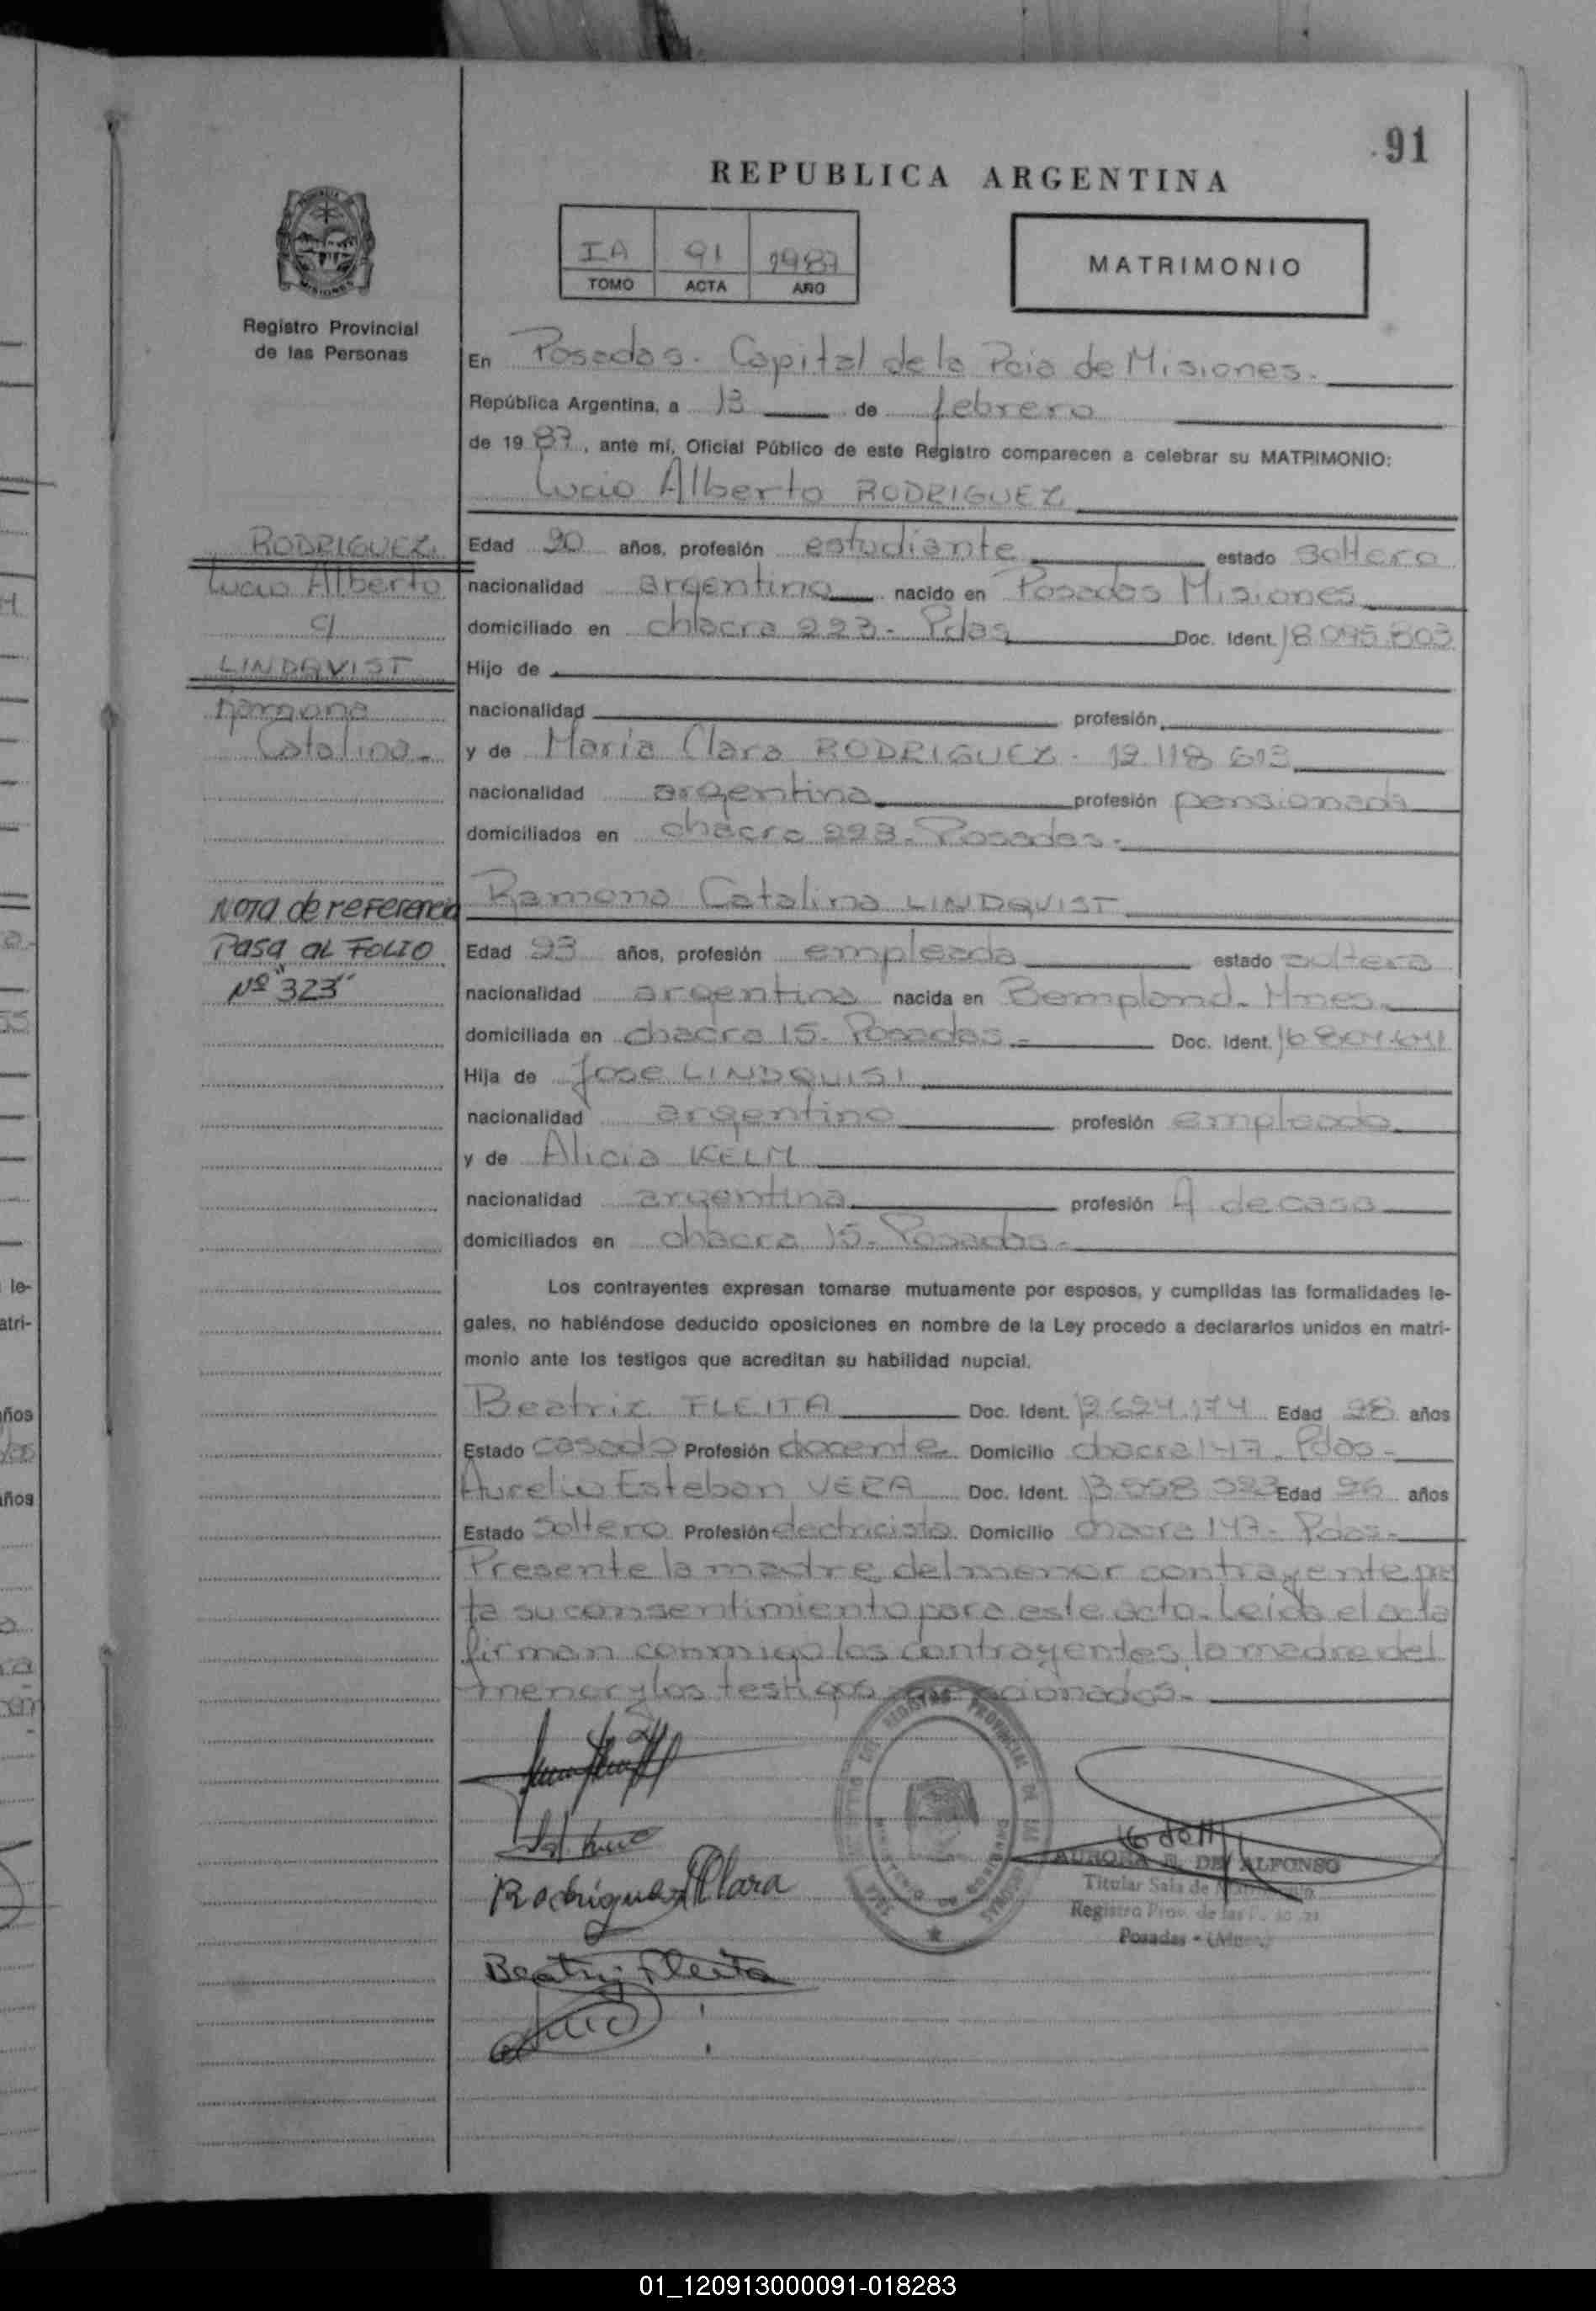 91
REPUBLICA ARGENTINA
IA 91 1987
TOMO ACTA AÑO
MATRIMONIO
MISIONES
Registro Provincial
de las Personas
En Posadas. Capital de la Pcia de Misiones.
República Argentina, a 13 de febrero
de 1987, ante mí, Oficial Público de este Registro comparecen a celebrar su MATRIMONIO:
Lucio Alberto RODRIGUEZ
RODRIGUEZ
Lucio Alberto
c/
LINDQVIST
Ramona
Catalina
Edad 20 años, profesión estudiante estado soltero
nacionalidad argentino nacido en Posadas Misiones
domiciliado en chacra 223 - Pdas Doc. Ident. 18.095.803
Hijo de
nacionalidad profesión
y de Maria Clara RODRIGUEZ - 12.118.613
nacionalidad argentina profesión pensionada
domiciliados en chacra 223 - Posadas.
Ramona Catalina LINDQVIST
Nota de referencia
Pasa al FOLIO
Nº "323"
Edad 23 años, profesión empleada estado soltera
nacionalidad argentina nacida en Bompland - Mnes.
domiciliada en chacra 15 - Posadas - Doc. Ident.
Hija de Jose LINDQUIST
nacionalidad argentino profesión empleado
y de Alicia KELM
nacionalidad argentina profesión A de casa
domiciliados en chacra 15 - Posadas.
Los contrayentes expresan tomarse mutuamente por esposos, y cumplidas las formalidades le-
gales, no habiéndose deducido oposiciones en nombre de la Ley procedo a declararlos unidos en matri-
monio ante los testigos que acreditan su habilidad nupcial.
Beatriz FLEITA Doc. Ident. 12.624.174 Edad 28 años
Estado casada Profesión docente Domicilio chacra 147 - Pdas -
Aurelio Esteban VERA Doc. Ident. Edad 26 años
Estado Soltero Profesión electricista Domicilio chacra 147 - Pdas -
Presente la madre del menor contrayente pres
ta su consentimiento para este acto. Leida el acta
firman conmigo los contrayentes, la madre del
menor y los testigos mencionados.
Rodriguez M Clara
Beatriz Fleita
AURORA DE ALFONSO
Titular Sala de
Registro Prov. de las
Posadas -
01_120913000091-018283